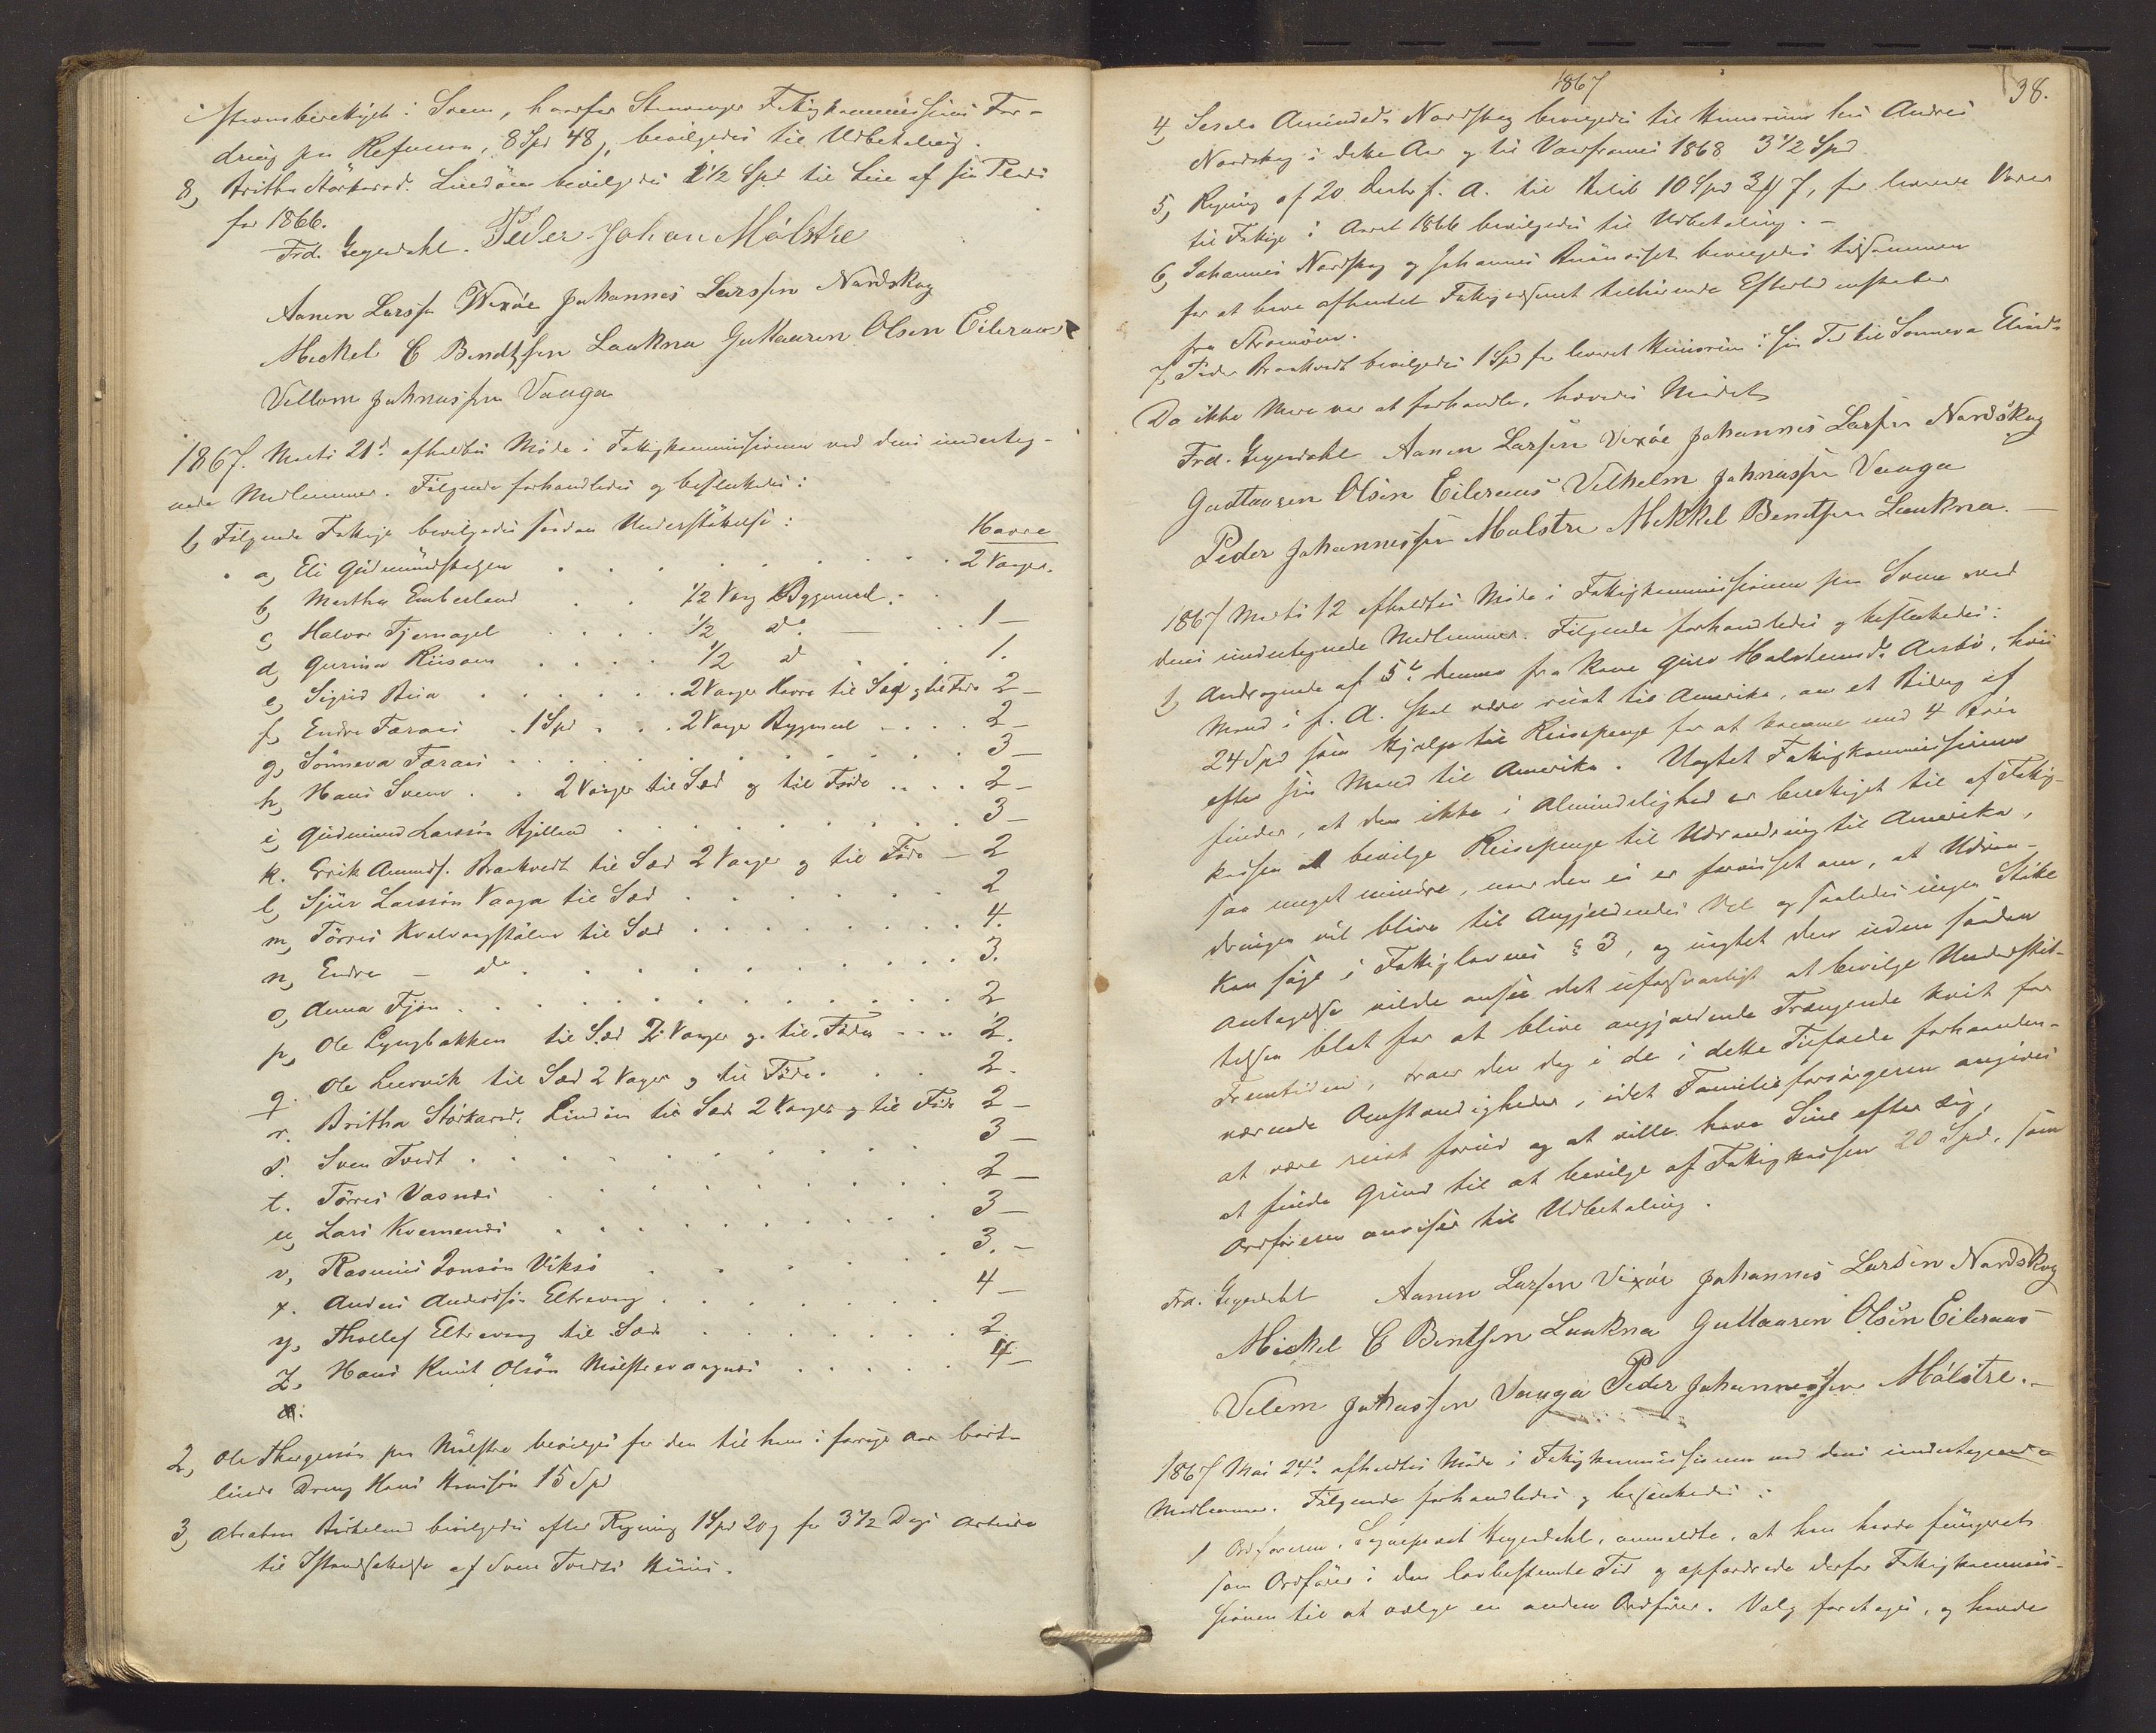 stemsberettiget i Sveen, hvorfor Stavanger Fattigkommissions For-
dring paa Refusion, 8 Spd 48, bevilgedes til Udbetaling.
8, Britha Störkersd. Lindöen bevilgedes 2 1/2 Spd til Leie af sin Plads
for 1866.
Frd. Gegerdahl. Peder Johan Mólstre
Aanen Larssen Wexóe Johannes Larssen Nardskog
Meckel C Bendtssen Laukna Guttauren Olsen Eileraas
Vellom Johnassen Vauga
1867. Marts 21d. afholdtes Möde i Fattigkommissionen ved dens underteg-
nede Medlemmer. Følgende forhandledes og besluttedes:
1, Følgende Fattige bevilgedes saadan Understöttelse: Havre
a, Eli Gudmundshagen . . . 2 Vaager.
b, Martha Emberland . . 1/2 Vaag Bygmeel. .
c, Halvor Tjernagel . . . . 1/2 do. — . . 1 —
d, Gurina Riisøen . . . . 1/2 d . . . 1.
e, Sigrid Bua . . . . . . 2 Vaager Havre til Sæd og til Føde 2 —
f, Endre Færaas . 1 Spd . . . 2 Vaager Bygmeel . . . . 2 —
g, Sönneva Færaas . . . 3 —
h, Hans Sveen . . 2 Vaager til Sæd og til Føde . . . . 2 —
i, Gudmund Larssön Bjelland . . . 3 —
k. Erik Amunds. Braatvedt til Sæd 2 Vaager og til Føde — 2
l, Sjur Larssön Vaaga til Sæd . . . 2
m, Törres Kvalvaagstölen til Sæd . . . 4.
n, Endre — do . . . 3.
o, Anna Tjön . . . 2
p, Ole Lyngbakken til Sæd 2 Vaager og til Føden . . . . 2.
q. Ole Leervik til Sæd 2 Vager og til Føde. . . . 2.
r. Britha Störkersd. Lindöen til Sæd 2 Vaager og til Føde 2 —
s. Sven Tvedt . . . 3 —
t. Törres Vasnes . . . 2 —
u, Lars Kvernenæs . . . 3 —
v, Rasmus Jonsön Viksö . . . 3. —
x. Anders Anderssön Eltrevaag . . . 4 —
y, Thollef Eltrevaag til Sæd . . . 2
z, Hans Knut Olsön Mölstrevaagnes . . . 4 —
2, Ole Thorgersön paa Mölstre bevilges for den til ham i forrige Aar bort-
liciterede Dreng Hans Hanssön 15 Spd
3, Abraham Birkeland bevilgedes efter Regning 1 Spd 20 for 3 1/2 Dags Arbeide
til Istandsættelse af Sven Tvedts Huus.
1867
38.
4, Amundsd. Nordskog bevilgedes til Huusrum hos Andreas
Nordskog i dette Aar og til Vaarframes 1868 3 1/2 Spd
5, Regning af 20 Decbr f. A. til Beløb 10 Spd 3 f 7, for leverede Varer
til Fattige i Aaret 1866 bevilgedes til Udbetaling. —
6, Johannes Nordskog og Johannes bevilgedes tilsammen
for at have afhentet Fattigvæsenet tilhørende Efterladenskaber
fra Strömöen.
7, Peder Braatvedt bevilgedes 1 Spd for leveret Huusrum i sin Tid til Sonneva Elindsd.
Da ikke Mere var at forhandle, hævedes Mødet
Frd. Gegerdahl Aanen Larssen Vexóe Johannes Larssen Nardskog
Gudtauren Olsen Eileraas Velhelm Johnassen Vauga
Peder Johannessen Malstre Mekkel Bendtsen Laukna. —
1867 Marts 12 afholdtes Möde i Fattigkommissionen for Sveen ved
dens undertegnede Medlemmer. Følgende forhandledes og besluttedes:
1, Andragende af 5te dennes fra Kone Guro Halstensd. Aarsbö, hvis
Mand i f. A. skal være reist til Amerika, om et Bidrag af
24 Spd som Hjelp til Reisepenge for at komme med 4 Börn
efter sin Mand til Amerika. Uagtet Fattigkommissionen
finder, at den ikke i Almindelighed er berettiget til af Fattig-
kassen at bevilge Reisepenge til Udvandring til Amerika,
saa meget mindre, naar den ei er forvisset om, at Udvan-
dringen vil blive til Angjeldendes Vel og saaledes ingen Støtte
kan søge i Fattiglovens § 3, og uagtet den uden saadan
Antagelse vilde ansee det uforsvarligt at bevilge Understøt-
telsen blot for at blive angjældende Trængende kvit for
Fremtiden, troer den dog i de i dette Tilfælde forhaanden-
værende Omstændigheder, idet Familieforsørgeren angives
at være reist forud og at ville have Sine efter sig,
at finde Grund til at bevilge af Fattigkassen 20 Spd, som
Ordføreren anviser til Udbetaling.
Frd. Gegerdahl Aanen Larssen Vexóe Johannes Larsen Nardskog
Mickel C Bentsen Laukna Guttauren Olsen Eileraas
Velem Johnassen Vauga Peder Johannessen Mólstre. —
1867 Mai 24de afholdtes Möde i Fattigkommissionen ved dens undertegnede
Medlemmer. Følgende forhandledes og besluttedes:
1 Ordføreren, Sogneprest Gegerdahl, anmeldte, at han havde fungeret
som Ordfører i den lovbestemte Tid og opfordrede derfor Fattigkommis-
sionen til at vælge en anden Ordfører. Valg foretoges, og havde